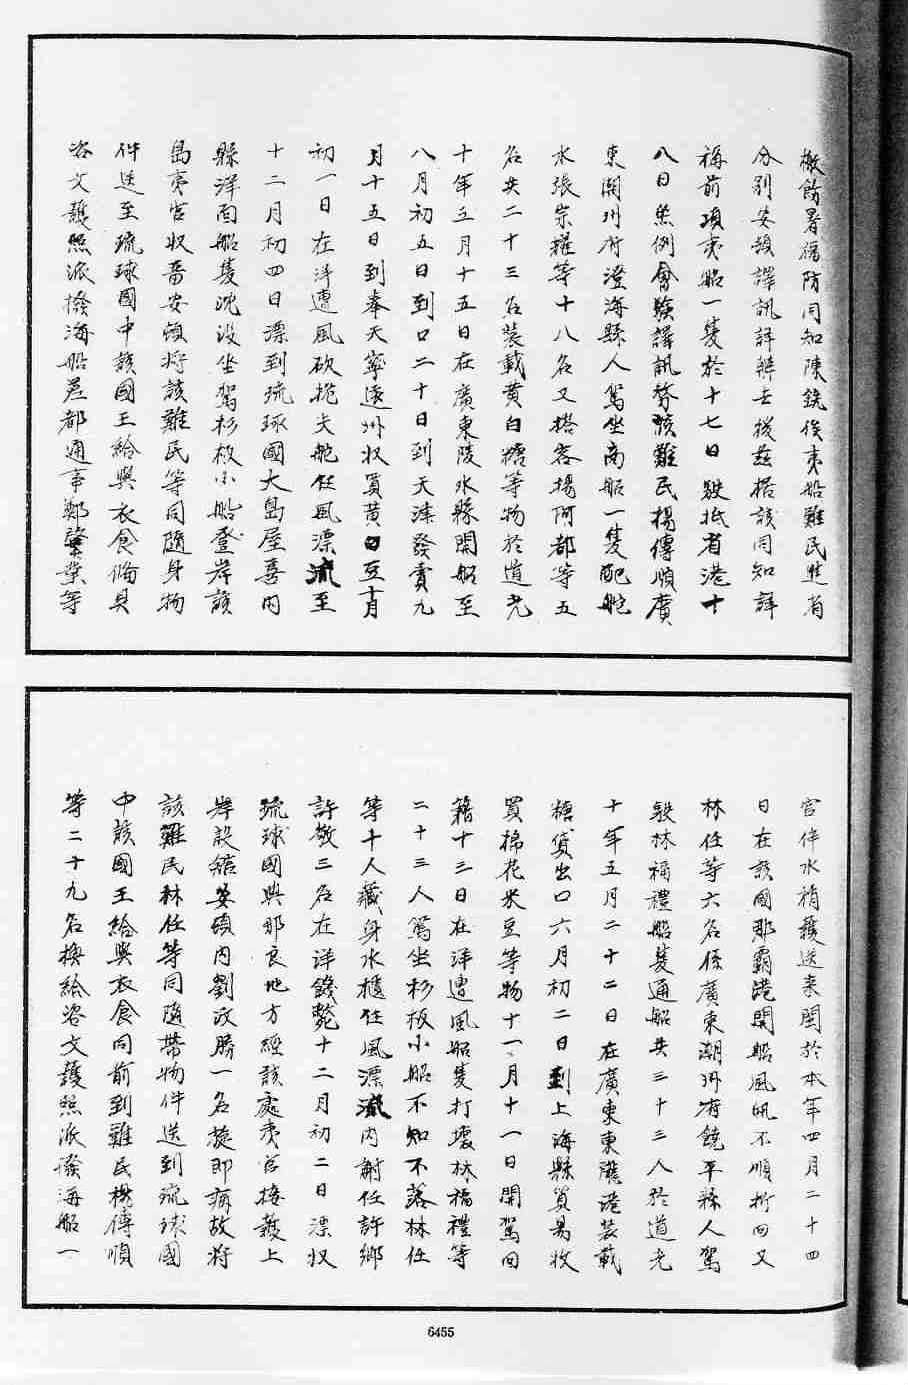 檄飭署福防同知陳銑俟夷船難民進省
分別安頓譯訊詳辦去後茲據該同知詳
稱前項夷船一隻於十七日駛抵省港十
八日照例會驗譯訊務該難民楊傳順廣
東潮州府澄海縣人駕坐商船一隻配舵
水張宗耀等十八名又搭客楊阿都等五
名共二十三名裝載黃白糖等物於道光
十年三月十五日在廣東陵水縣開船至
八月初五日到口二十日到天津發賣九
月十五日到奉天寧遠州收買黃豆十月
初一日在洋遭風砍桅失舵任風漂流至
十二月初四日漂到琉球國大島屋喜內
縣洋面船隻沈沒坐駕杉板小船登岸該
島夷官收養安頓將該難民等同隨身物
件送至琉球國中該國王給與衣食備具
咨文護照派撥海船差都通事鄭肇業等
官伴水梢護送來閩於本年四月二十四
日在該國那霸港開船風帆不順折回又
林任等六名係廣東潮州府饒平縣人駕
駛林福禮船隻通船共三十三人於道光
十年五月二十二日在廣東東隴港裝載
糖貨出口六月初二日到上海縣貿易收
買棉花米豆等物十一月十一日開駕回
籍十三日在洋遭風船隻打壞林福禮等
二十三人駕坐杉板小船不知下落林任
等十人藏身水櫃任風漂流內謝任許鄉
許敬三名在洋餓斃十二月初二日漂收
琉球國與那良地方經該處夷官接護上
岸設館安頓內劉政勝一名旋即病故將
該難民林任等同隨帶物件送到琉球國
中該國王給與衣食同前到難民楊傳順
等二十九名換給咨文護照派撥海船一
6455